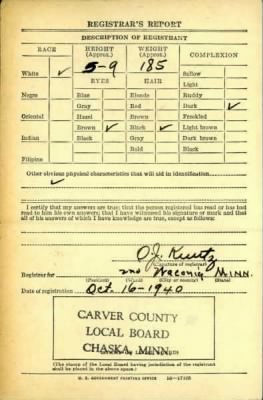 REGISTRAR'S REPORT
DESCRIPTION OF REGISTRANT
RACE HEIGHT (Approx.) WEIGHT (Approx.) COMPLEXION
5-9 185
White ✓ EYES HAIR Sallow
Light
Negro Blue Blonde Ruddy
Gray Red Dark ✓
Oriental Hazel Brown Freckled
Brown ✓ Black ✓ Light brown
Indian Black Gray Dark brown
Bald Black
Filipino
Other obvious physical characteristics that will aid in identification
✓
I certify that my answers are true; that the person registered has read or has had
read to him his own answers; that I have witnessed his signature or mark and that
all of his answers of which I have knowledge are true, except as follows:
O.J. Kuntz
(Signature of registrar)
Registrar for 2nd Waconia MINN.
(Precinct) (City or county) (State)
Date of registration Oct. 16-1940
CARVER COUNTY
LOCAL BOARD
CHASKA, MINN.
(The stamp of the Local Board having jurisdiction of the registrant
shall be placed in the above space.)
U. S. GOVERNMENT PRINTING OFFICE 16-17105